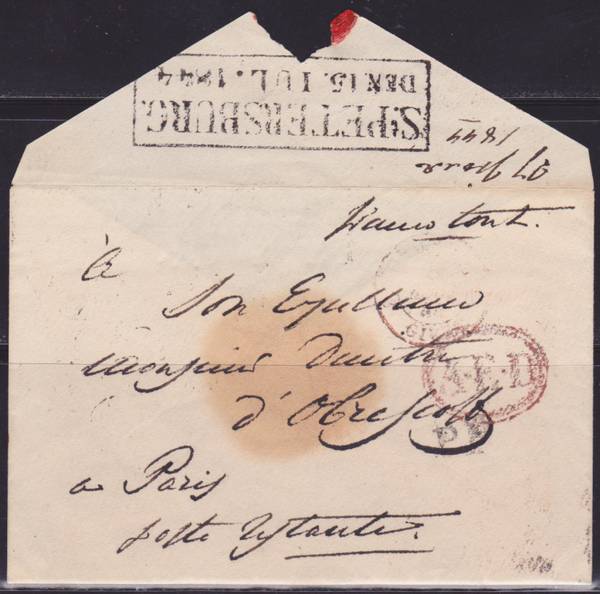 S. PETERSBURG.
DEN 15. IUL. 1844
27 июля
1844
franco tout.
à
Son Excellence
Monsieur Dmitri
d'Obrescoff
a Paris
poste restante.
A.E.D
PP